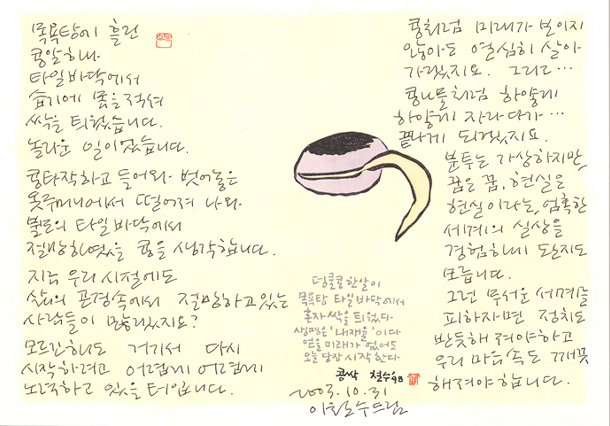 목욕탕에 흘린
콩알하나
타일바닥에서
습기에 몸을 적셔
싹을 틔웠습니다.
놀라운 일이었습니다.
콩타작하고 들어와 벗어놓은
옷주머니에서 떨어져 나와
불모의 타일바닥에서
절망하였을 콩을 생각합니다.
지금 우리 시절에도
삶의 곤경속에서 절망하고있는
사람들이 많겠지요?
모르긴해도 거기서 다시
시작하려고 어렵게 어렵게
노력하고 있을 터입니다.
콩처럼 미래가 보이지
않아도 열심히 살아
가겠지요. 그리고…
콩나물처럼 하얗게
하얗게 자라다가…
끝나게 되겠지요.
분투는 가상하지만,
꿈은 꿈, 현실은
현실이라는, 엄혹한
세계의 실상을
경험하게 되는지도
모릅니다.
그런 무서운 세계를
피하자면 정치도
반듯해져야하고
우리 마음속도 깨끗
해져야 합니다.
덩굴콩 한알이
목욕탕 타일바닥에서
혼자 싹을 틔웠다.
생명은 '내재율'이다
연을 미래가 없어도
오늘 당장 시작한다.
콩싹 철수'98
2003.10.31
이철수드림